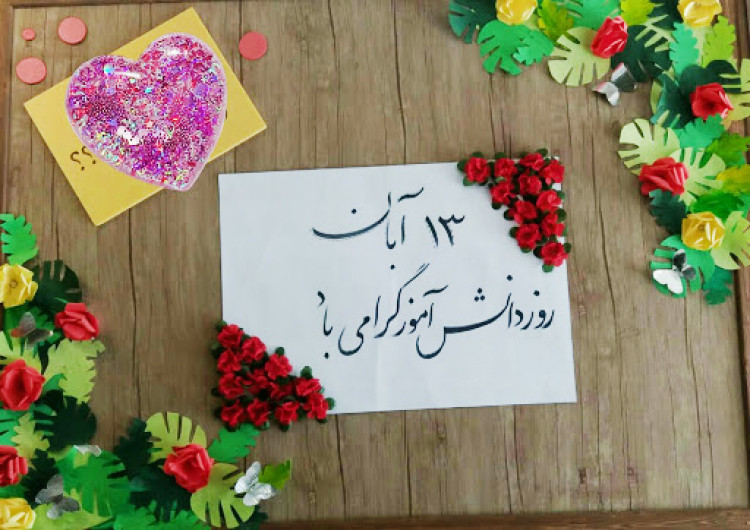 ؟؟
۱۳ آبان
روز دانش آموز گرامی باد